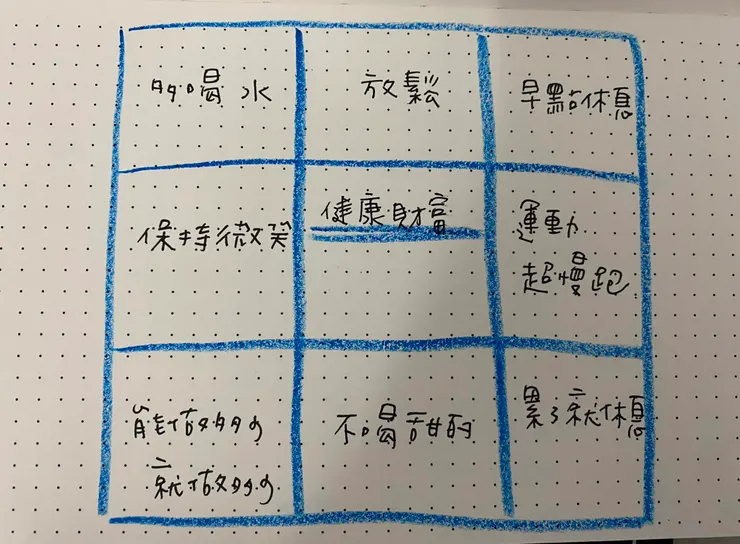 多喝水
放鬆
早點休息
保持微笑
健康財富
運動
超慢跑
能做多少
就做多少
不喝甜的
累了就休息